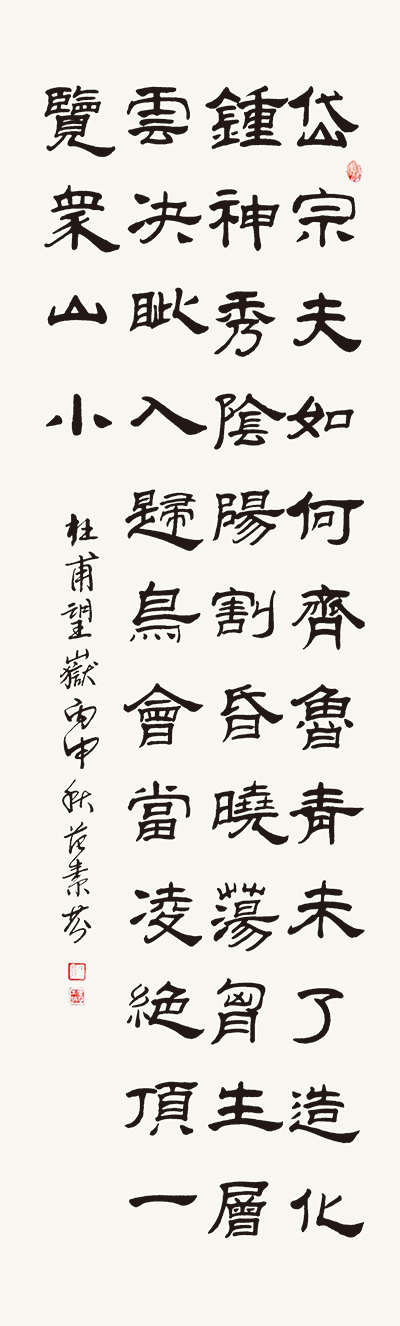 岱宗夫如何齊魯青未了造化
鍾神秀陰陽割昏曉蕩胷生層
雲決眦入歸鳥會當凌絕頂一
覽眾山小
杜甫望嶽丙申秋范素芬